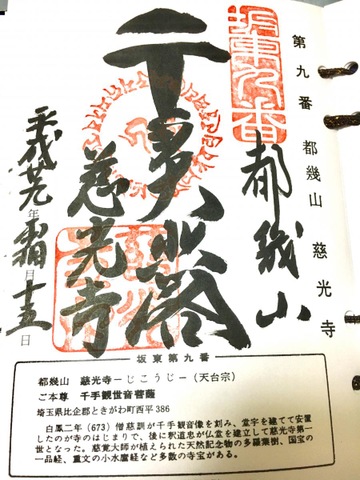 第九番 都幾山 慈光寺
坂東九番
都幾山
千
慈光寺
平成廿九年霜月十五日
坂東第九番
都幾山 慈光寺ーじこうじー(天台宗)
ご本尊 千手観世音菩薩
埼玉県比企郡ときがわ町西平386
白鳳二年(673)僧慈訓が千手観音像を刻み、堂宇を建てて安置
したのが寺のはじまりで、後に釈道忠が仏堂を建立して慈光寺第一
世となった。慈覚大師が植えられた天然記念物の多羅葉樹、国宝の
一品経、重文の小水麿経など多数の寺宝がある。